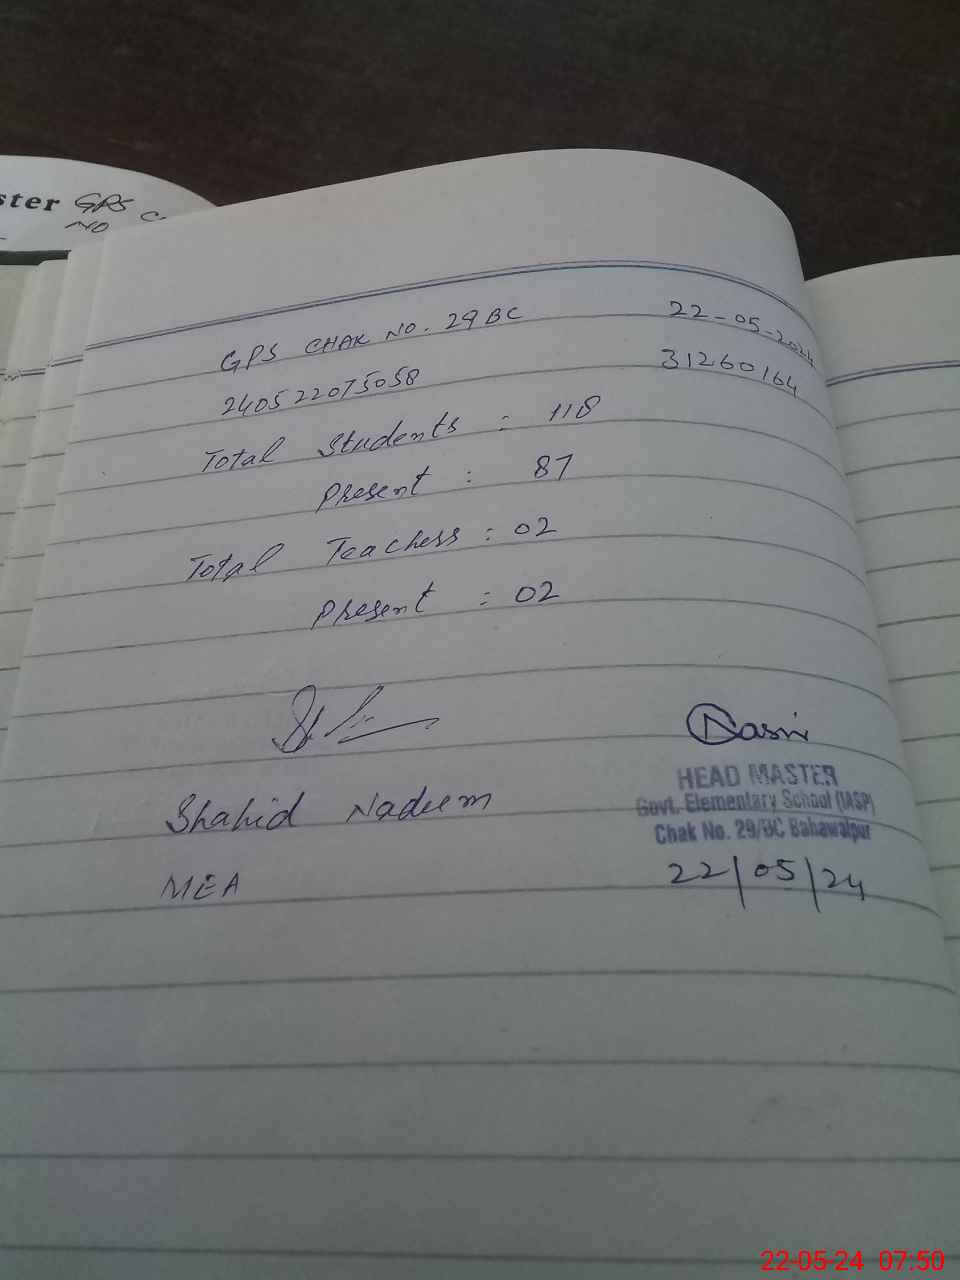 ster GPS
NO
GPS CHAK NO. 29 BC 22-05-2024
240522075058 31260164
Total Students : 118
Present : 87
Total Teachers : 02
Present : 02
Nasir
HEAD MASTER
Shahid Nadeem Govt. Elementary School (IASP)
Chak No. 29/BC Bahawalpur
MEA 22/05/24
22-05-24 07:50